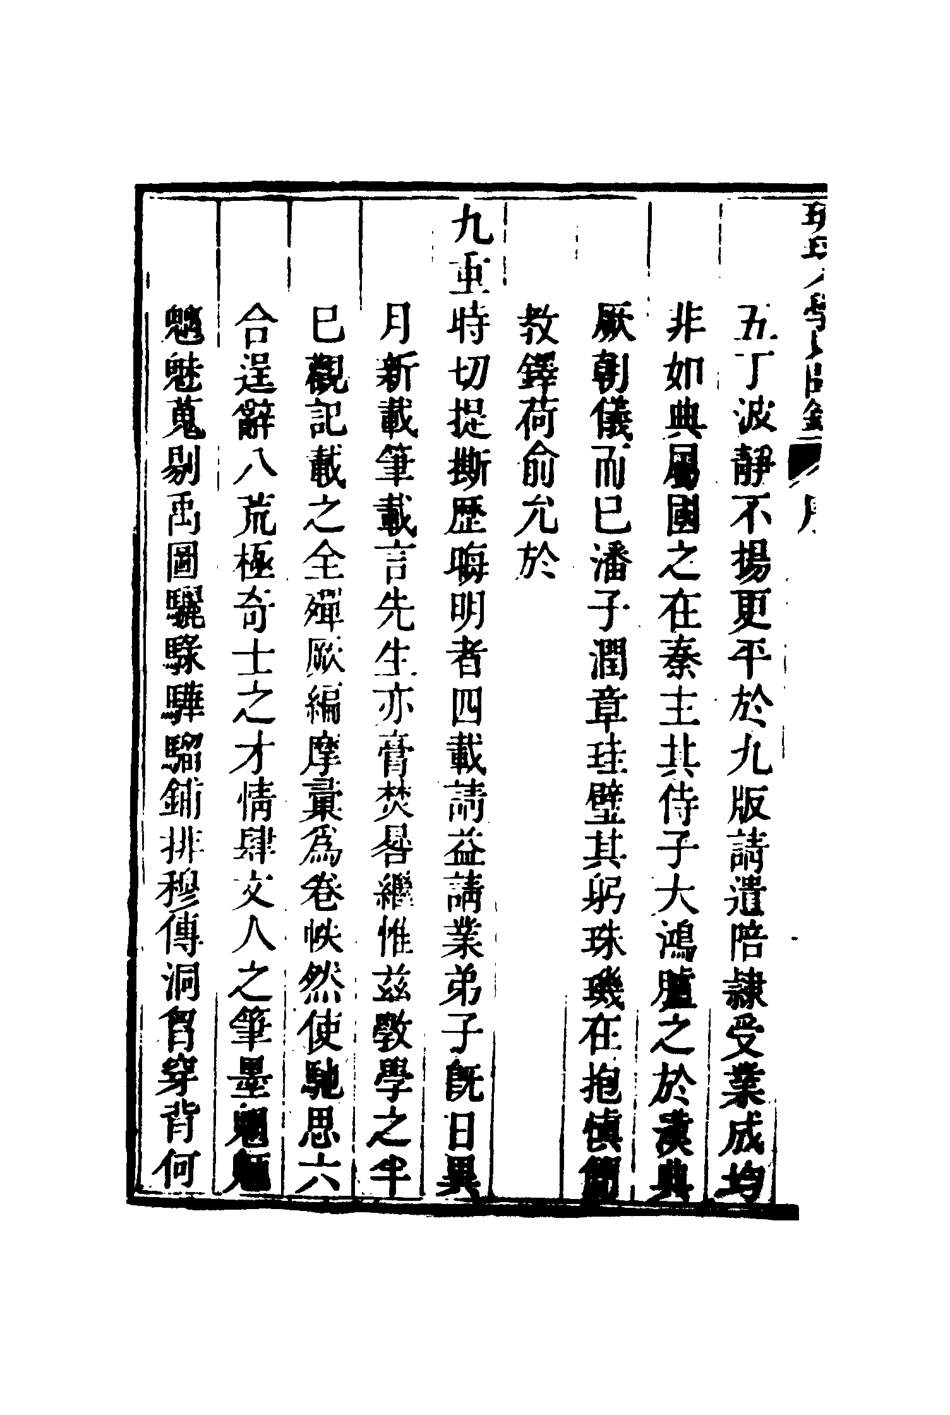 五丁波靜不揚更平於九版請遣陪隷受業成均
非如典屬國之在秦主其侍子大鴻臚之於漢典
厥朝儀而已潘子潤章珪璧其躬珠璣在抱慎簡
教鐸荷俞允於
九重時切提撕歷晦明者四載請益請業弟子旣日異
月新載筆載言先生亦膏焚晷繼惟兹斅學之半
已觀記載之全殫厥編摩彙爲卷帙然使馳思六
合逞辭八荒極奇士之才情肆文人之筆墨魍魎
魑魅蒐剔禹圖驪騄驊騮鋪排穆傳洞胷穿背何